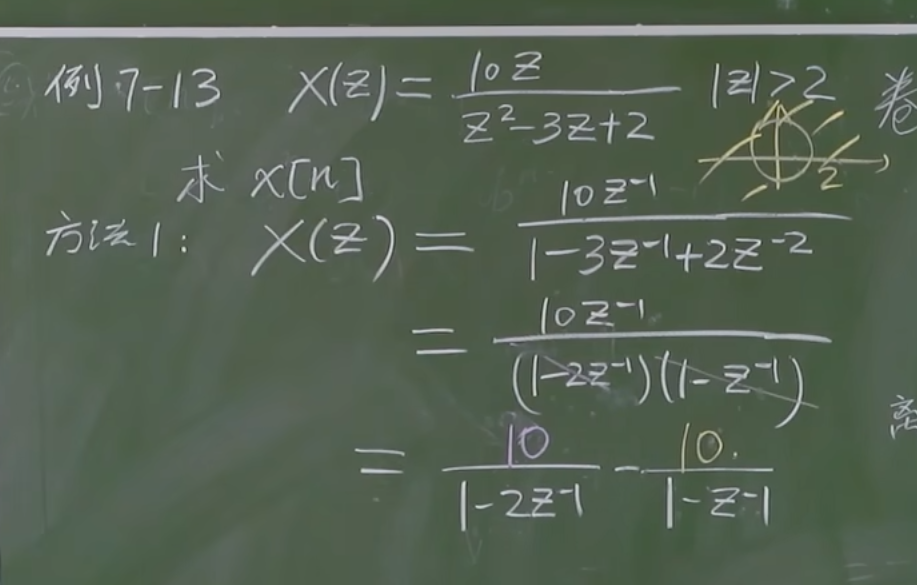 例7-13 X(z) = \frac{10z}{z^2-3z+2} |z|>2 卷
2
求 x[n]
方法1: X(z) = \frac{10z^{-1}}{1-3z^{-1}+2z^{-2}}
= \frac{10z^{-1}}{(1-2z^{-1})(1-z^{-1})}
离
= \frac{10}{1-2z^{-1}} - \frac{10}{1-z^{-1}}